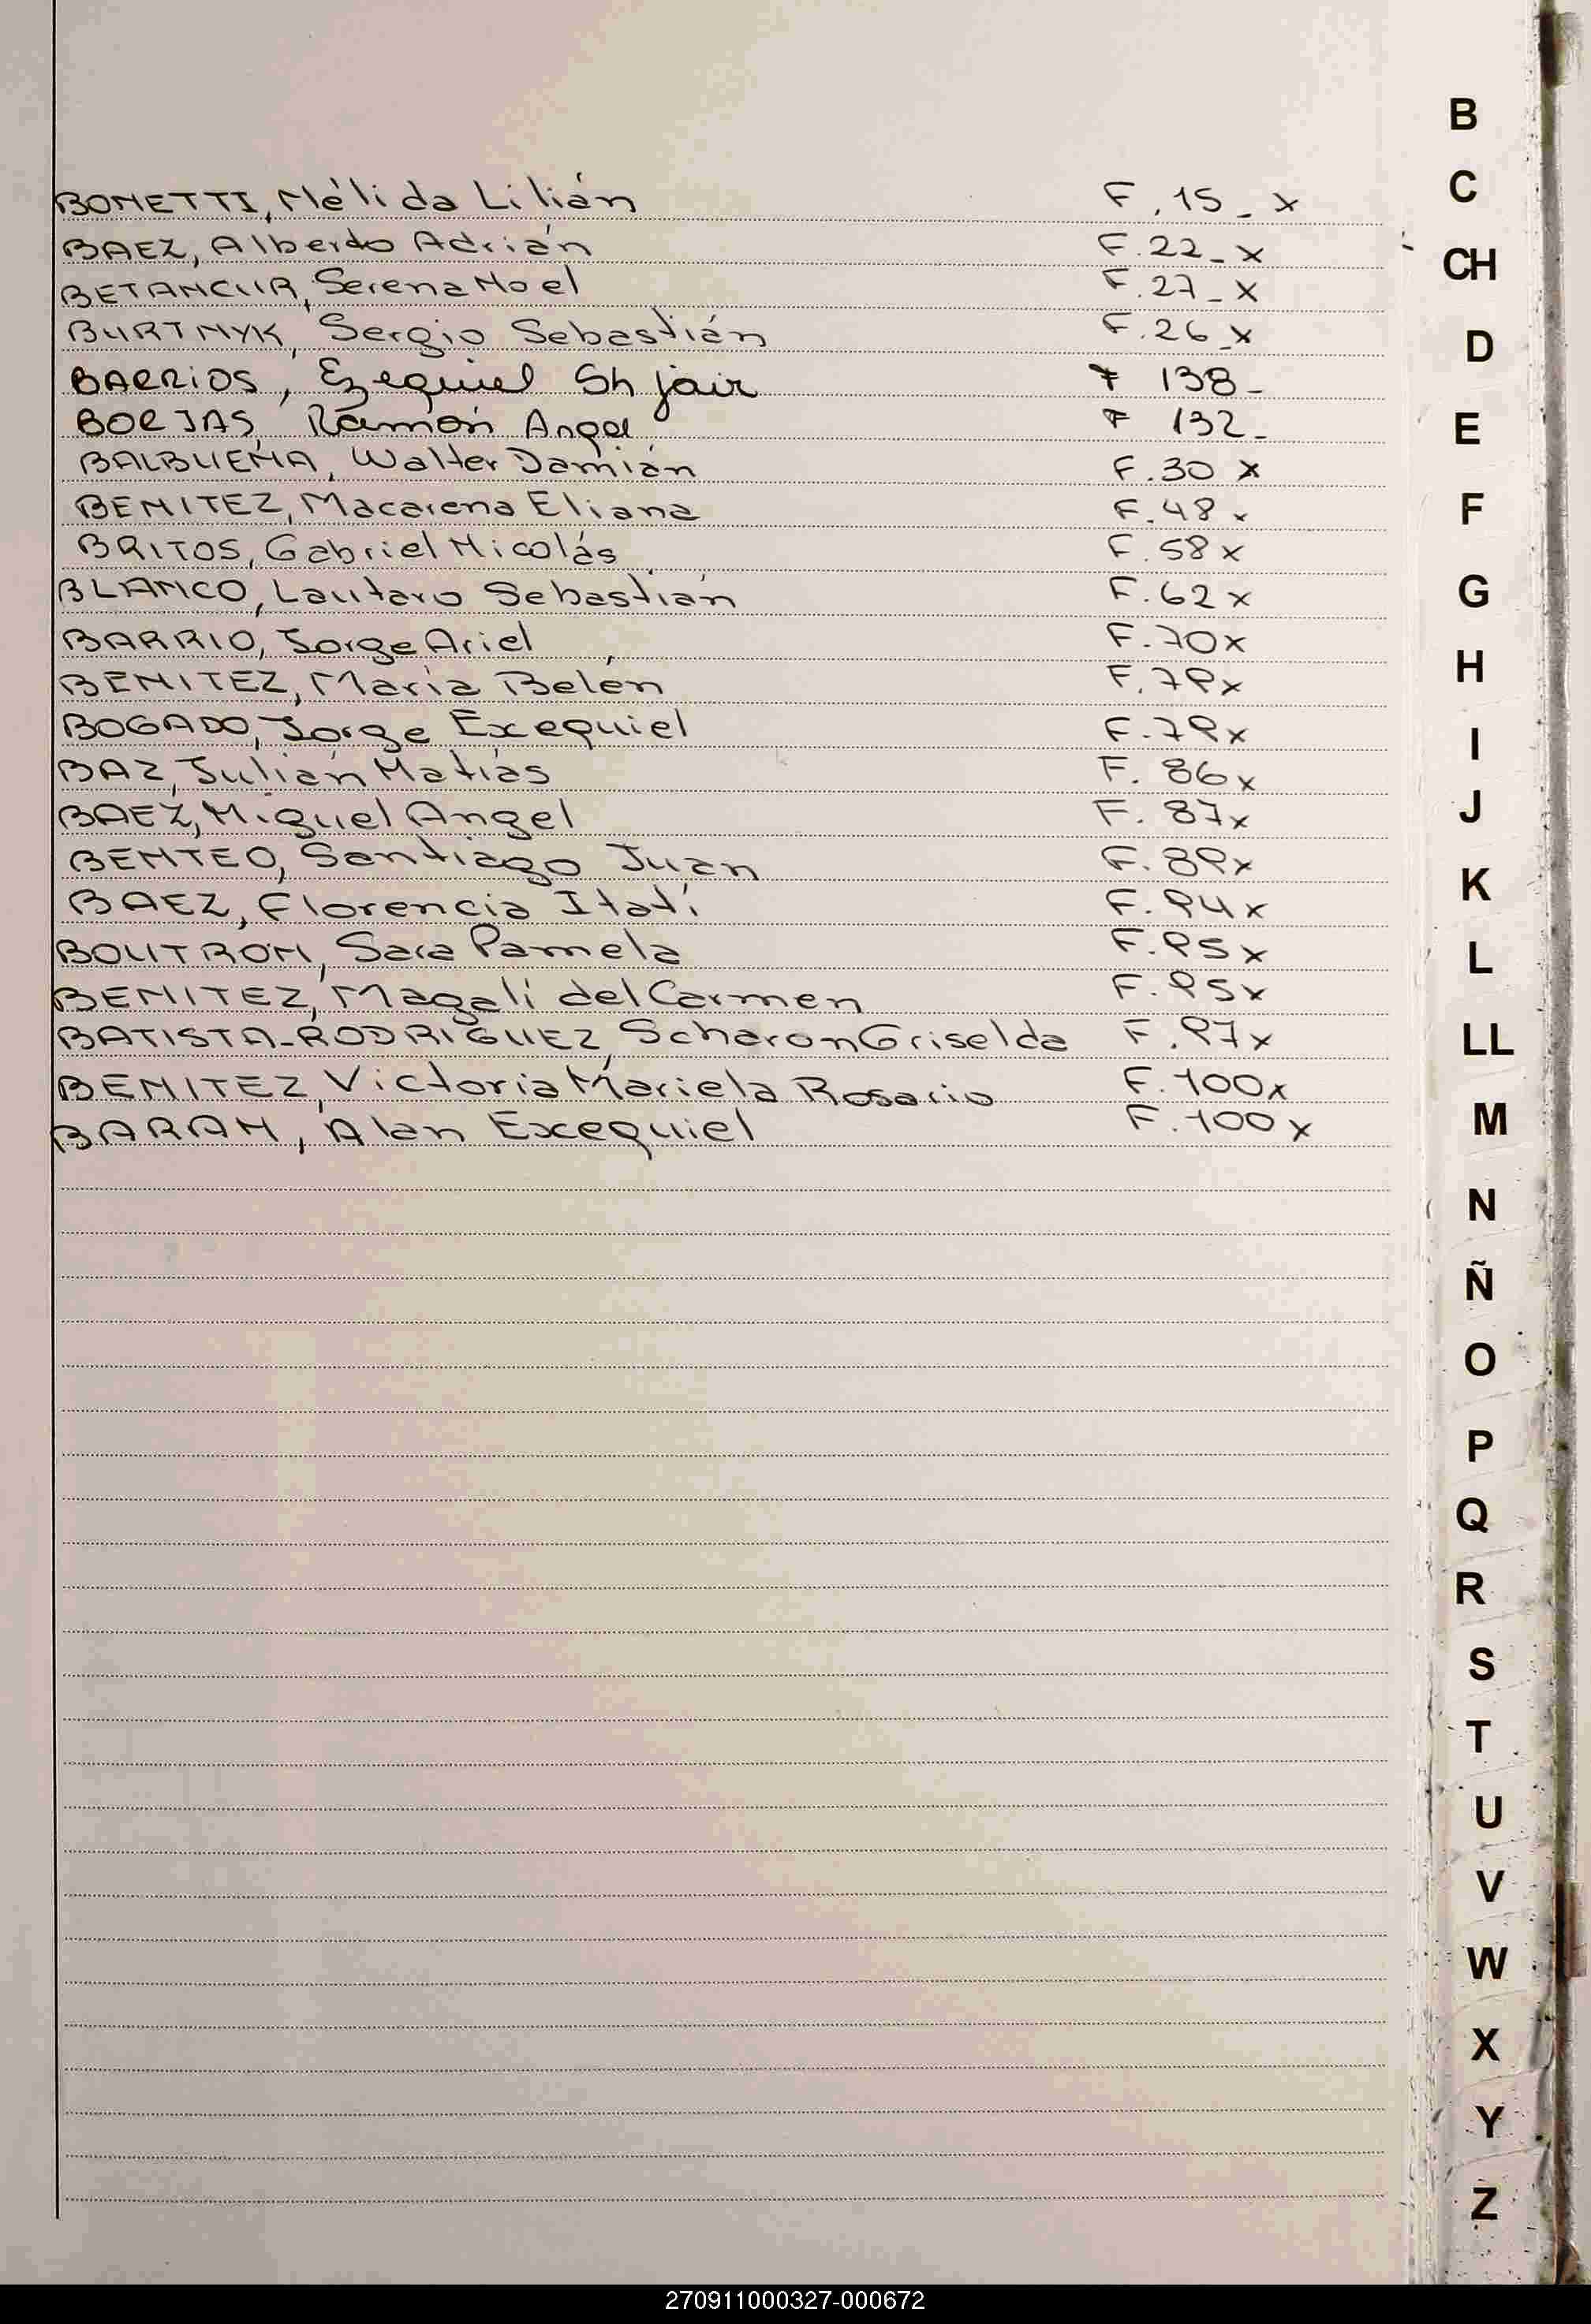 BONETTI, Nélida Lilián F. 15 - x
BAEZ, Alberto Adrián F. 22 - x
BETANCUR, Serena Noel F. 27 - x
BURTNYK, Sergio Sebastián F. 26 - x
BARRIOS, Ezequiel Sh jair F 138 -
BORJAS, Ramón Angel F 132 -
BALBUENA, Walter Damián F. 30 x
BENITEZ, Macarena Eliana F. 48 x
BRITOS, Gabriel Nicolás F. 58 x
BLANCO, Lautaro Sebastián F. 62 x
BARRIO, Jorge Ariel F. 70 x
BENITEZ, María Belén F. 79 x
BOGADO, Jorge Exequiel F. 79 x
BAZ, Julián Matías F. 86 x
BAEZ, Miguel Angel F. 87 x
BENTEO, Santiago Juan F. 89 x
BAEZ, Florencia Itatí F. 94 x
BOUTRON, Sara Pamela F. 95 x
BENITEZ, Magalí del Carmen F. 95 x
BATISTA-RODRIGUEZ, Scharon Griselda F. 97 x
BENITEZ, Victoria Mariela Rosario F. 100 x
BARAN, Alan Exequiel F. 100 x
B
C
CH
D
E
F
G
H
I
J
K
L
LL
M
N
Ñ
O
P
Q
R
S
T
U
V
W
X
Y
Z
270911000327-000672